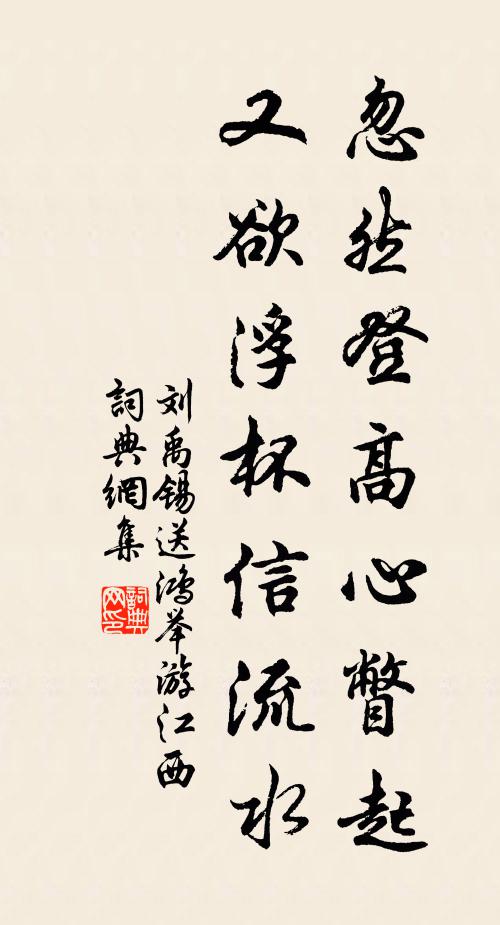 忽然登高心瞥起
又欲浮杯信流水
刘禹锡送鸿举游江西
詞典網集
詞典
网印